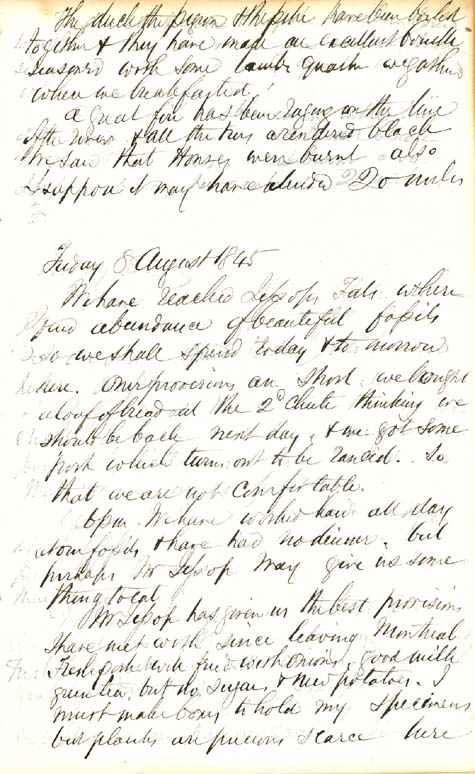 The duck the pigeon & the pike have been boiled
together & they have made an excellent bouilli
seasoned with some lambs quarter we gathered
when we breakfasted.
A great fire has been raging on the line
of the river & all the trees are rendered black
We saw that Houses were burnt also
I suppose it may have extended 20 miles
Friday 8 August 1845
We have reached Jessops Falls where
find abundance of beautiful fossils
so we shall spend today & to morrow
here. Our provisions are short. we bought
a loaf of bread at the 2d chute thinking we
should be back next day. & we got some
pork which turns out to be rancid. So
that we are not comfortable.
6 pm We have worked hard all day
at our fossils & have had no dinner. but
perhaps Mr Jessop may give us some
thing to eat
Mr Jessop has given us the best provisions
I have met with since leaving Montreal
Fresh pork well fried with onions, good milk
green tea but no sugar, & new potatoes. I
must make boxes to hold my specimens
but planks are precious scarce here